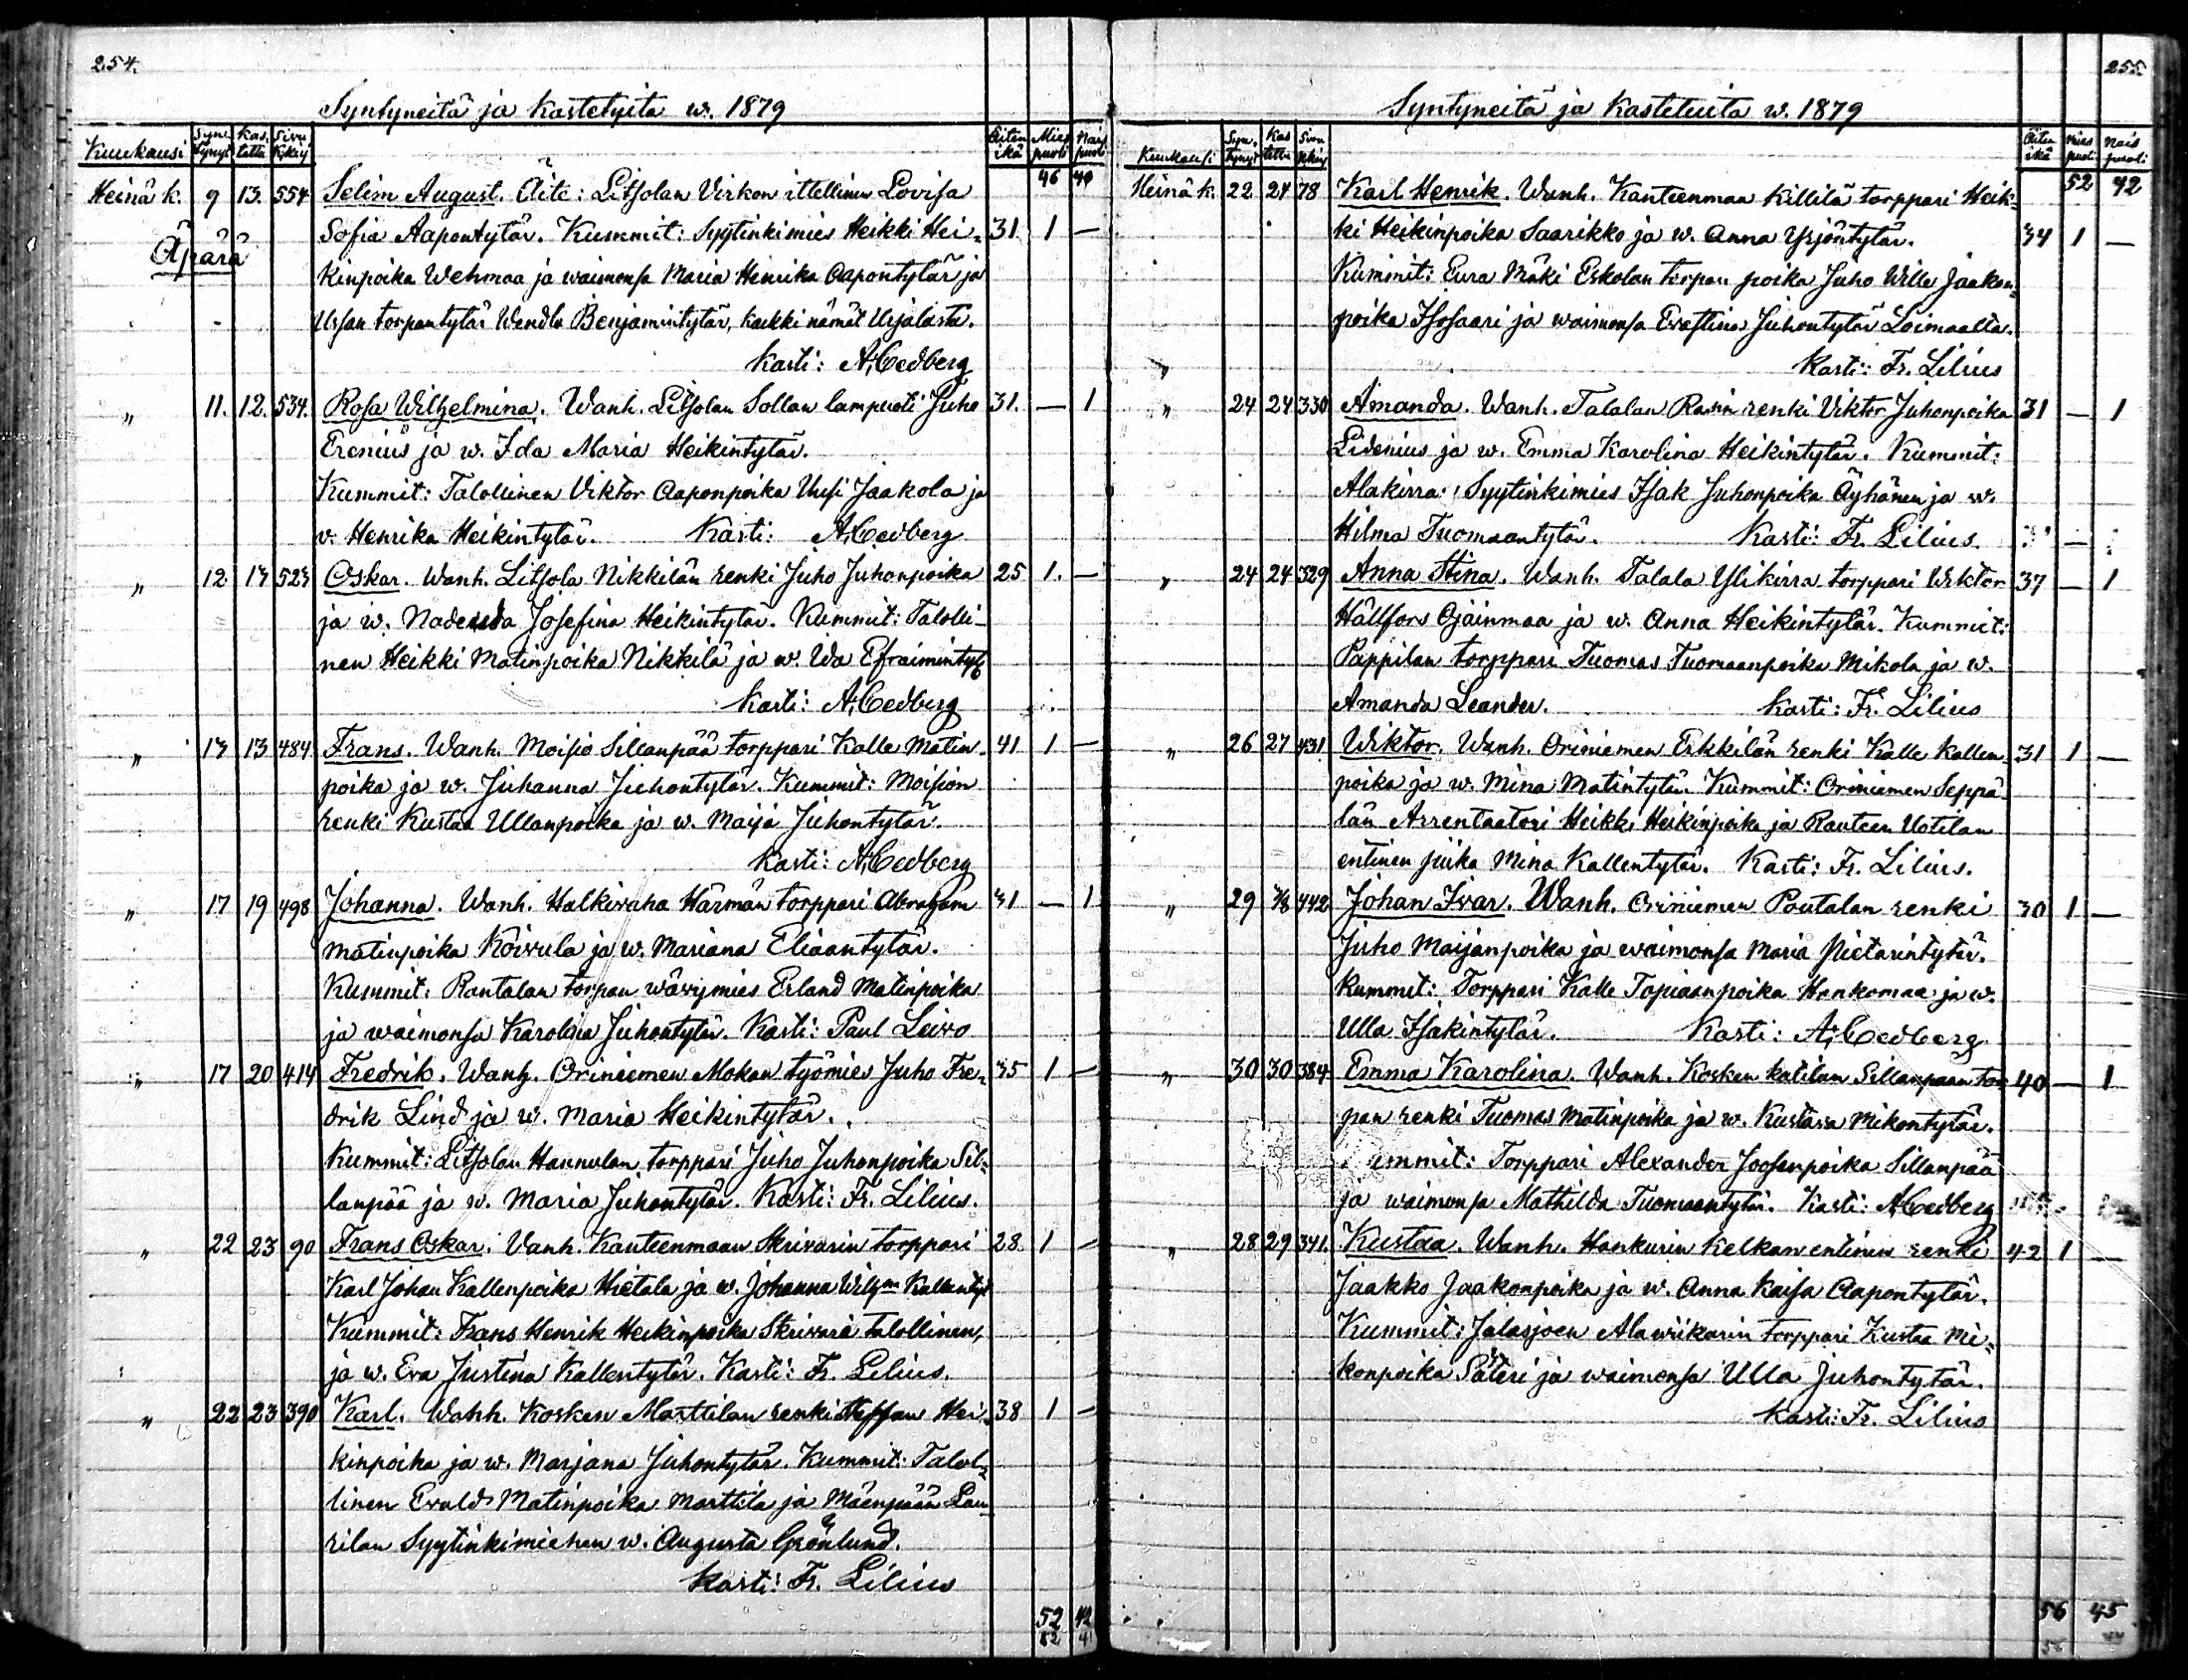 254.
Syntyneitä ja Kastetyita w. 1879
Kuukausi Syn. tynyt Kas. tettu Sivu Äiten ikä Mies puoli Nais puoli
46 40
Heinä k. 9 13. 554 Selim August. Äite: Litsolan Virkon ittellinen Lovisa
Sofia Aapontytär. Kummit: Syytinkimies Heikki Hei- 31 1 —
Äpärä
kinpoika Wehmaa ja waimonsa Maria Henrika Aapontytär ja
torpantytär Wendla Benjamintytär, kaikki nämät Urjalasta.
Kasti: A. Cedberg
" 11. 12. 534. Rosa Wilhelmina. Wanh. Litsolan Sollan lampuoti Juho 31. — 1
Erenius ja w. Ida Maria Heikintytär.
Kummit: Talollinen Viktor Aaponpoika Uusi Jaakola ja
v. Henrika Heikintytär. Kasti: A. Cedberg
" 12 13 523 Oskar. Wanh. Litsola Nikkilän renki Juho Juhonpoika 25 1. —
ja w. Nadesda Josefina Heikintytär. Kummit: Talolli-
nen Heikki Matinpoika Nikkilä ja w. Ida Efraimintyt.
Kasti: A. Cedberg
" 13 13 484 Frans. Wanh. Moisio Sillanpää torppari Kalle Matin- 41 1 —
poika ja w. Juhanna Juhontytär. Kummit: Moision
renki Kustaa Ullanpoika ja w. Maija Juhontytär.
Kasti: A. Cedberg
" 17 19 498 Johanna. Wanh. Halkivaha Härmän torppari Abraham 31 — 1
Matinpoika Koivula ja w. Mariana Eliaantytär.
Kummit: Rantalan torpan wävymies Erland Matinpoika
ja waimonsa Karolina Juhontytär. Kasti: Paul Leivo
" 17 20 414 Fredrik. Wanh. Oriniemen Mokan työmies Juho Fre- 35 1 —
drik Lind ja w. Maria Heikintytär.
Kummit: Litsolan Hannulan torppari Juho Juhonpoika Sil-
lanpää ja w. Maria Juhontytär. Kasti: Fr. Lilius.
" 22 23 90 Frans Oskar. Vanh. Kanteenmaan Skrivarin torppari 28 1 —
Karl Johan Kallenpoika Hietala ja w. Johanna Wilhm Kallentyt
Kummit: Frans Henrik Heikinpoika Skrivari talollinen,
ja w. Eva Justina Kallentytär. Kasti: Fr. Lilius.
" 22 23 390 Karl. Wanh. Kosken Marttilan renki Steffan Hei- 38 1 —
kinpoika ja w. Marjana Juhontytär. Kummit: Talol-
linen Evald Matinpoika Marttila ja Mäenpään Lau-
rilan Syytinkimiehen w. Augusta Grönlund.
Kasti: Fr. Lilius
52 42
52 41
255
Syntyneitä ja Kastetuita w. 1879
Kuukausi Syn. tynyt Kas tettu Sivu Äiten ikä Mies puoli Nais puoli
52 42
Heinä k. 22 24 78 Karl Henrik. Wanh. Kanteenmaa Killilä torppari Heik-
ki Heikinpoika Saarikko ja w. Anna Yrjöntytär. 34 1 —
Kummit: Eura Mäki Eskolan torpan poika Juho Wille Jaakon-
poika Isosaari ja waimonsa Evastina Juhontytär Loimaalta.
" Kasti: Fr. Lilius
" 24 24 330 Amanda. Wanh. Talalan Rasin renki Viktor Juhonpoika 31 — 1
Lidenius ja w. Emma Karolina Heikintytär. Kummit:
Alakirra: Syytinkimies Isak Juhonpoika Äyhänen ja w.
Hilma Tuomaantytär. Kasti: Fr. Lilius.
" 24 24 329 Anna Stina. Wanh. Talala Ylikirra torppari Viktor 37 — 1
Hällfors Ojainmaa ja w. Anna Heikintytär. Kummit:
Pappilan torppari Tuomas Tuomaanpoika Mikola ja w.
Amanda Leander. Kasti: Fr. Lilius
" 26 27 431 Wiktor. Wanh. Oriniemen Erkkilän renki Kalle Kallen- 31 1 —
poika ja w. Mina Matintytär. Kummit: Oriniemen Seppä-
län Arrentaatori Heikki Heikinpoika ja Rauteen Uotilan
entinen piika Mina Kallentytär. Kasti: Fr. Lilius.
" 29 3/8 442 Johan Ivar. Wanh. Oriniemen Poutalan renki 30 1 —
Juho Maijanpoika ja waimonsa Maria Pietarintytär.
Kummit: Torppari Kalle Topiaanpoika Honkomaa ja w.
Ulla Isakintytär. Kasti: A. Cedberg
" 30 30 384 Emma Karolina. Wanh. Kosken katilan Sillanpään tor 40 — 1
pan renki Tuomas Matinpoika ja w. Kustava Mikontytär.
ummit: Torppari Alexander Joosenpoika Sillanpää
ja waimonsa Mathilda Tuomaantytär. Kasti: A. Cedberg
" 28 29 341. Kustaa. Wanh. Honkurin Kelkan entinen renki 42 1 —
Jaakko Jaakonpoika ja w. Anna Kaisa Aapontytär.
Kummit: Jalasjoen Alawiikarin torppari Kustaa Mi-
konpoika Säteri ja waimonsa Ulla Juhontytär.
Kasti: Fr. Lilius
56 45
56 44